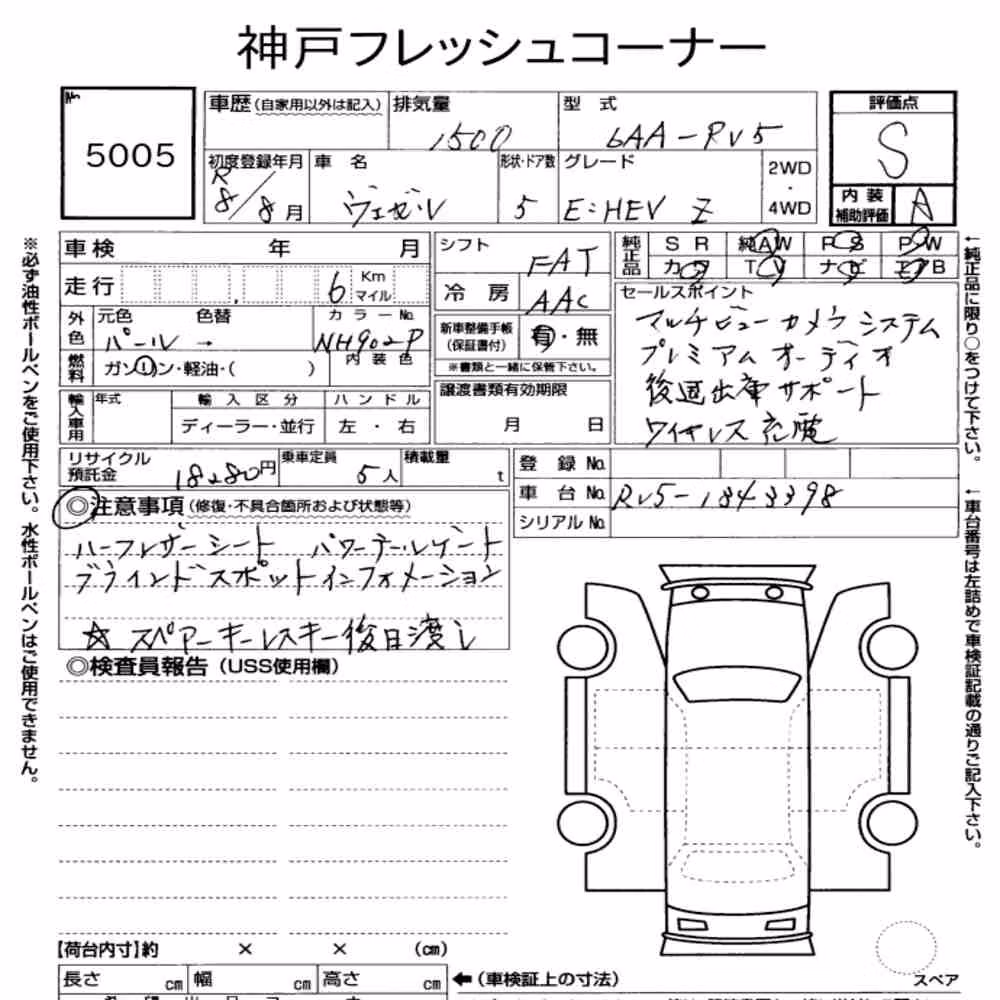 神戸フレッシュコーナー
No.
5005
車歴(自家用以外は記入)
排気量
1500
型 式
6AA-RV5
評価点
S
初度登録年月
R
8/8月
車 名
ヴェゼル
形状・ドア数
5
グレード
E:HEV Z
2WD
・
4WD
内 装
補助評価
A
車検 年 月
走行 6 Km
マイル
外色
元色 色替 カラーNo.
パール → NH902P
燃料
ガソリン・軽油・( )
内 装 色
輸入車用
年式
輸 入 区 分
ディーラー・並行
ハ ン ド ル
左 ・ 右
シフト
FAT
冷 房
AAC
新車整備手帳
(保証書付)
有・無
※書類と一緒に保管下さい。
譲渡書類有効期限
月 日
純正品
S R 純AW P S P W
カ ワ T V ナ ビ エアB
セールスポイント
マルチビューカメラシステム
プレミアムオーディオ
後退出庫サポート
ワイヤレス充電
リサイクル
預託金
18280円
乗車定員
5人
積載量
t
登 録 No.
車 台 No. RV5-1343398
シリアルNo.
◎注意事項(修復・不具合箇所および状態等)
ハーフレザーシート パワーテールゲート
ブラインドスポットインフォメーション
☆ スペアーキーレスキー後日渡し
◎検査員報告(USS使用欄)
【荷台内寸】約 × × (cm)
長さ cm 幅 cm 高さ cm
←(車検証上の寸法)
スペア
※必ず油性ボールペンをご使用下さい。水性ボールペンはご使用できません。
←純正品に限り○をつけて下さい。
←車台番号は左詰めで車検証記載の通りご記入下さい。